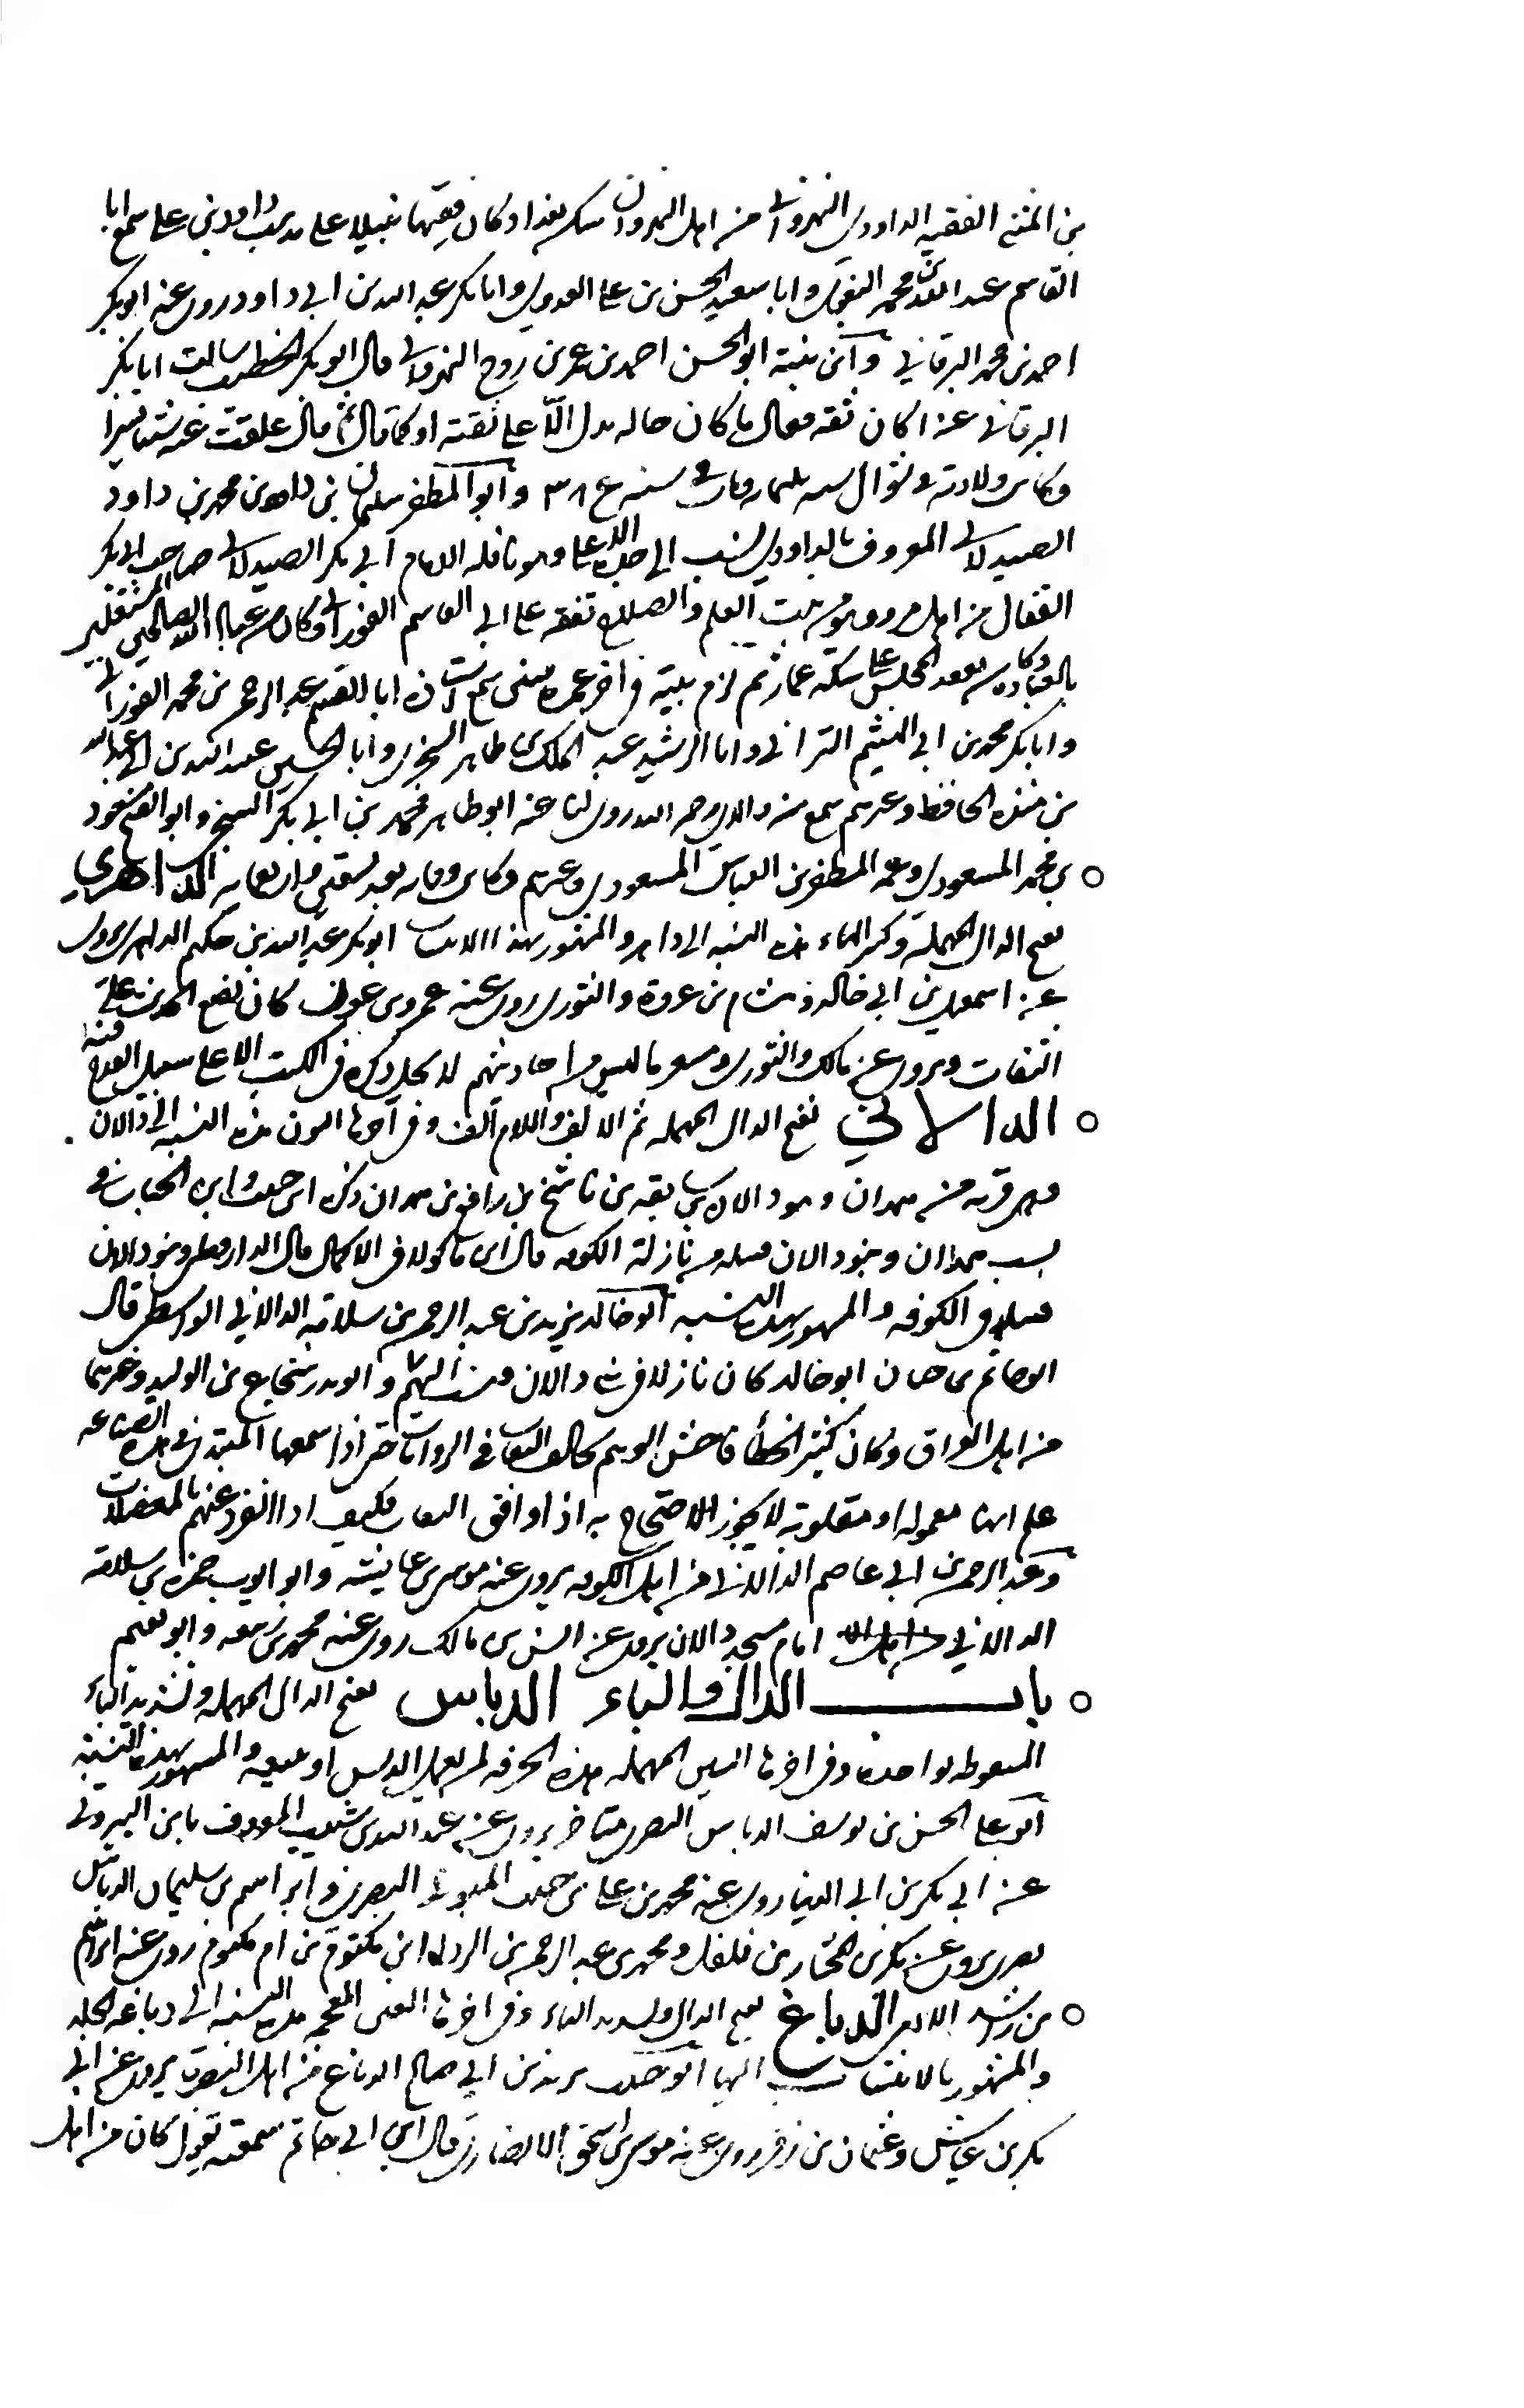 بن المثنى الفقيه الداودي النهرواني من اهل النهروان سكن بغداد وكان فقيها نبيلا على مذهب داود بن علي سمع ابا
القاسم عبد الله بن محمد البغوي وابا سعيد الحسن بن علي العدوي وابا بكر عبد الله بن ابي داود روى عنه ابو بكر
احمد بن محمد البرقاني وابن بنته ابو الحسن احمد بن عمر بن روح النهرواني قال ابو بكر الخطيب سالت ابا بكر
البرقاني عنه اكان ثقة فقال ما كان حاله يدل الا على ثقته او كما قال ثم قال علقت عنه شيا يسيرا
وكانت ولادته في شوال سنه ومات في سنه وابو المظفر سليمان بن داود بن محمد بن داود
الصيدلاني المعروف بالداودي نسب الى جده الاعلى وهو نافلة الامام ابي بكر الصيدلاني صاحب ابي بكر
القفال من اهل مرو وهو من بيت العلم والصلاح تفقه على ابي القاسم الفوراني وكان من عباد الله الصالحين المشتغلين
بالعبادة وكان يعقد المجلس على سكة عمار ثم لزم بيته في اخر عمره سمع استاذه ابا القسم عبد الرحمن بن محمد الفوراني
وابا بكر محمد بن ابي الهيثم الترابي وابا الرشيد عبد الملك بن طاهر السجزي وابا الحسين عبد الله بن ابي عبد الله
بن منده الحافظ وغيرهم سمع منه والدي رحمه الله روى لنا عنه ابو طاهر محمد بن ابي بكر السنجي وابو الفتح مسعود
بن محمد المسعودي وعمه المظفر بن العباس المسعودي وغيرهم وكانت وفاته بعد سنة واربعمايه الداهري
بفتح الدال المهملة وكسر الهاء هذه النسبه الى داهر والمشهور بهذا الانتساب ابو بكر عبد الله بن حكيم الداهري يروي
عن اسمعيل بن ابي خالد وهشام بن عروة والثوري روى عنه عمرو بن عون كان يضع الحديث على
الثقات ويروي عن مالك والثوري ومسعر ما ليس من احاديثهم لا يحل ذكره في الكتب الا على سبيل القدح فيه
الدالاني بفتح الدال المهمله ثم الالف واللام الف وفي آخرها النون هذه النسبه الى دالان
وهي قرية من همدان وهو دالان بن سابقه بن ناشخ بن رافع بن همدان ذكره ابن حبيب وابن الحباب في
نسب همدان وبنو دالان قبيله من نازلة الكوفه قال ابن ماكولا في الاكمال قال الدارقطني وبنو دالان
قبيله في الكوفه والمشهور بهذه النسبه ابو خالد يزيد بن عبد الرحمن بن سلامه الدالاني الواسطي قال
ابو حاتم بن حبان ابو خالد كان نازلا في بني دالان فنسب اليهم وابو بدر شجاع بن الوليد وغيرهما
من اهل العراق وكان كثير الخطأ فاحش الوهم يخالف الثقات في الروايات حتى اذا سمعها المبتدئ في هذه الصناعه
علم انها معموله او مقلوبه لا يجوز الاحتجاج به اذا وافق الثقات فكيف اذا انفرد عنهم بالمعضلات
وعبد الرحمن بن ابي عاصم الدالاني من اهل الكوفه يروي عنه موسى بن عايشه وابو ايوب حمزه بن سلامه
الدالاني امام مسجد دالان يروي عن انس بن مالك روى عنه محمد بن ربيعه وابو نعيم
باب الدال والباء الدباس بفتح الدال المهمله وتشديد الباء
المنقوطه بواحده وفي اخرها السين المهمله هذه الحرفه لمن يعمل الدبس او يبيعه والمشهور بهذه النسبة
ابو علي الحسن بن يوسف الدباس البصري متاخر يروي عنه عبد الله بن شعيب المعروف بابن البيروتي
عن ابي بكر بن ابي الدنيا روى عنه محمد بن علي بن حبيب المتوثي البصري وابراهيم بن سليمان الدباس
بصري يروي عن بكر بن المختار بن فلفل ومحمد بن عبد الرحمن بن الرداد ابن مكتوم بن ام مكتوم روى عنه ابراهيم
بن راشد الادمي الدباغ بفتح الدال وتشديد الباء وفي اخرها الغين المعجمه هذه النسبه الى دباغة الجلد
والمشهور بالانتساب اليها ابو حبيب يزيد بن ابي صالح الدباغ من اهل البصرة يروي عن ابي
بكر بن عياش وعثمان بن زفر روى عنه موسى بن اسحق الانصاري قال ابن ابي حاتم سمعته يقول كان من اهل